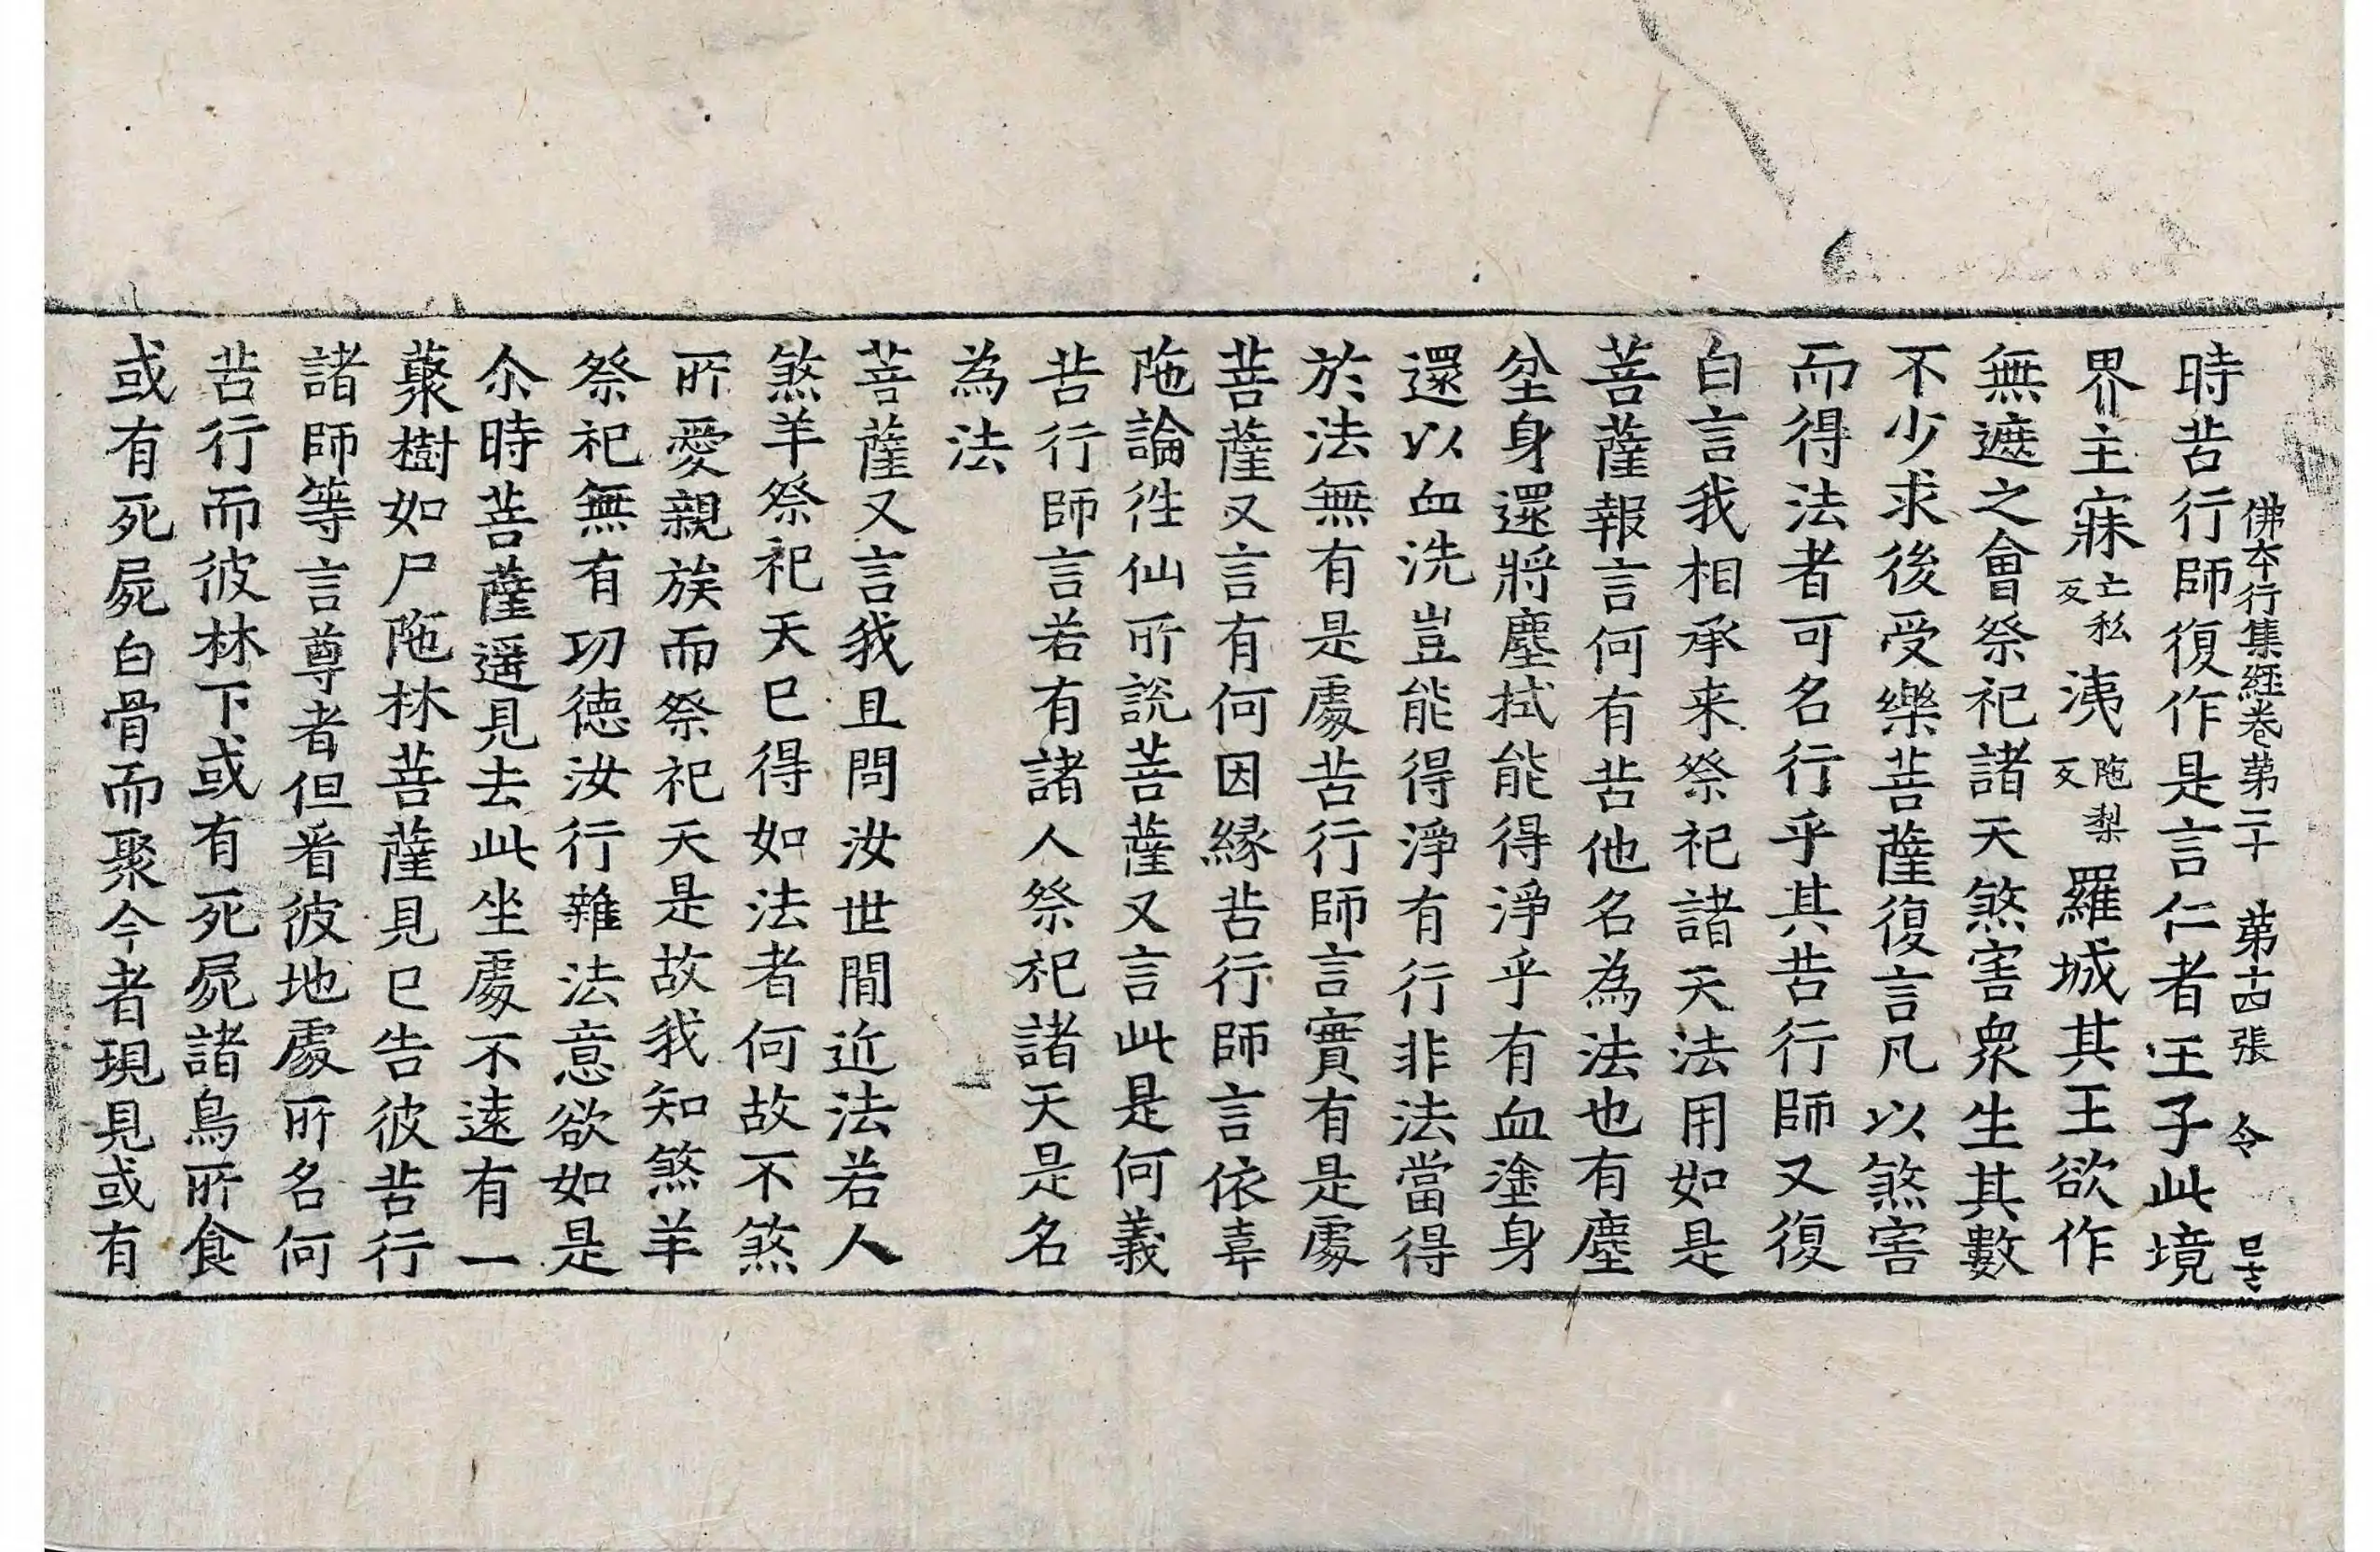 佛本行集經卷第二十 第十四張 令
時苦行師復作是言仁者王子此境
界主寐亡私反洟陁梨反羅城其王欲作
無遮之會祭祀諸天煞害衆生其數
不少求後受樂菩薩復言凡以煞害
而得法者可名行乎其苦行師又復
白言我相承来祭祀諸天法用如是
菩薩報言何有苦他名為法也有塵
坌身還將塵拭能得淨乎有血塗身
還以血洗豈能得淨有行非法當得
於法無有是處苦行師言實有是處
菩薩又言有何因緣苦行師言依韋
陁論徃仙所說菩薩又言此是何義
苦行師言若有諸人祭祀諸天是名
為法
菩薩又言我且問汝世間近法若人
煞羊祭祀天已得如法者何故不煞
所愛親族而祭祀天是故我知煞羊
祭祀無有功德汝行雜法意欲如是
尒時菩薩遥見去此坐處不遠有一
藂樹如尸陁林菩薩見已告彼苦行
諸師等言尊者但看彼地處所名何
苦行而彼林下或有死屍諸鳥所食
或有死屍白骨而聚今者現見或有